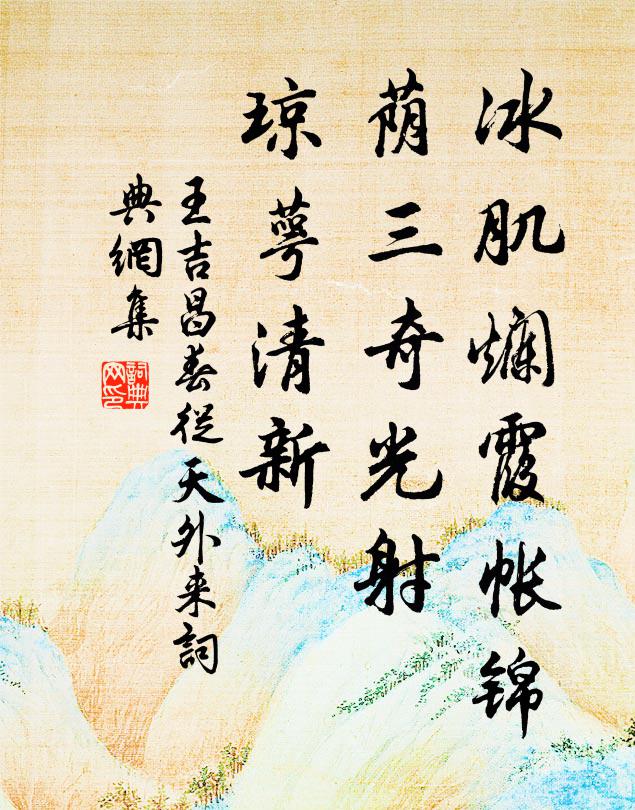 冰肌斓霞帐锦
荫三奇光射
琼萼清新
王吉昌春從天外来詞
典網集
詞典网印